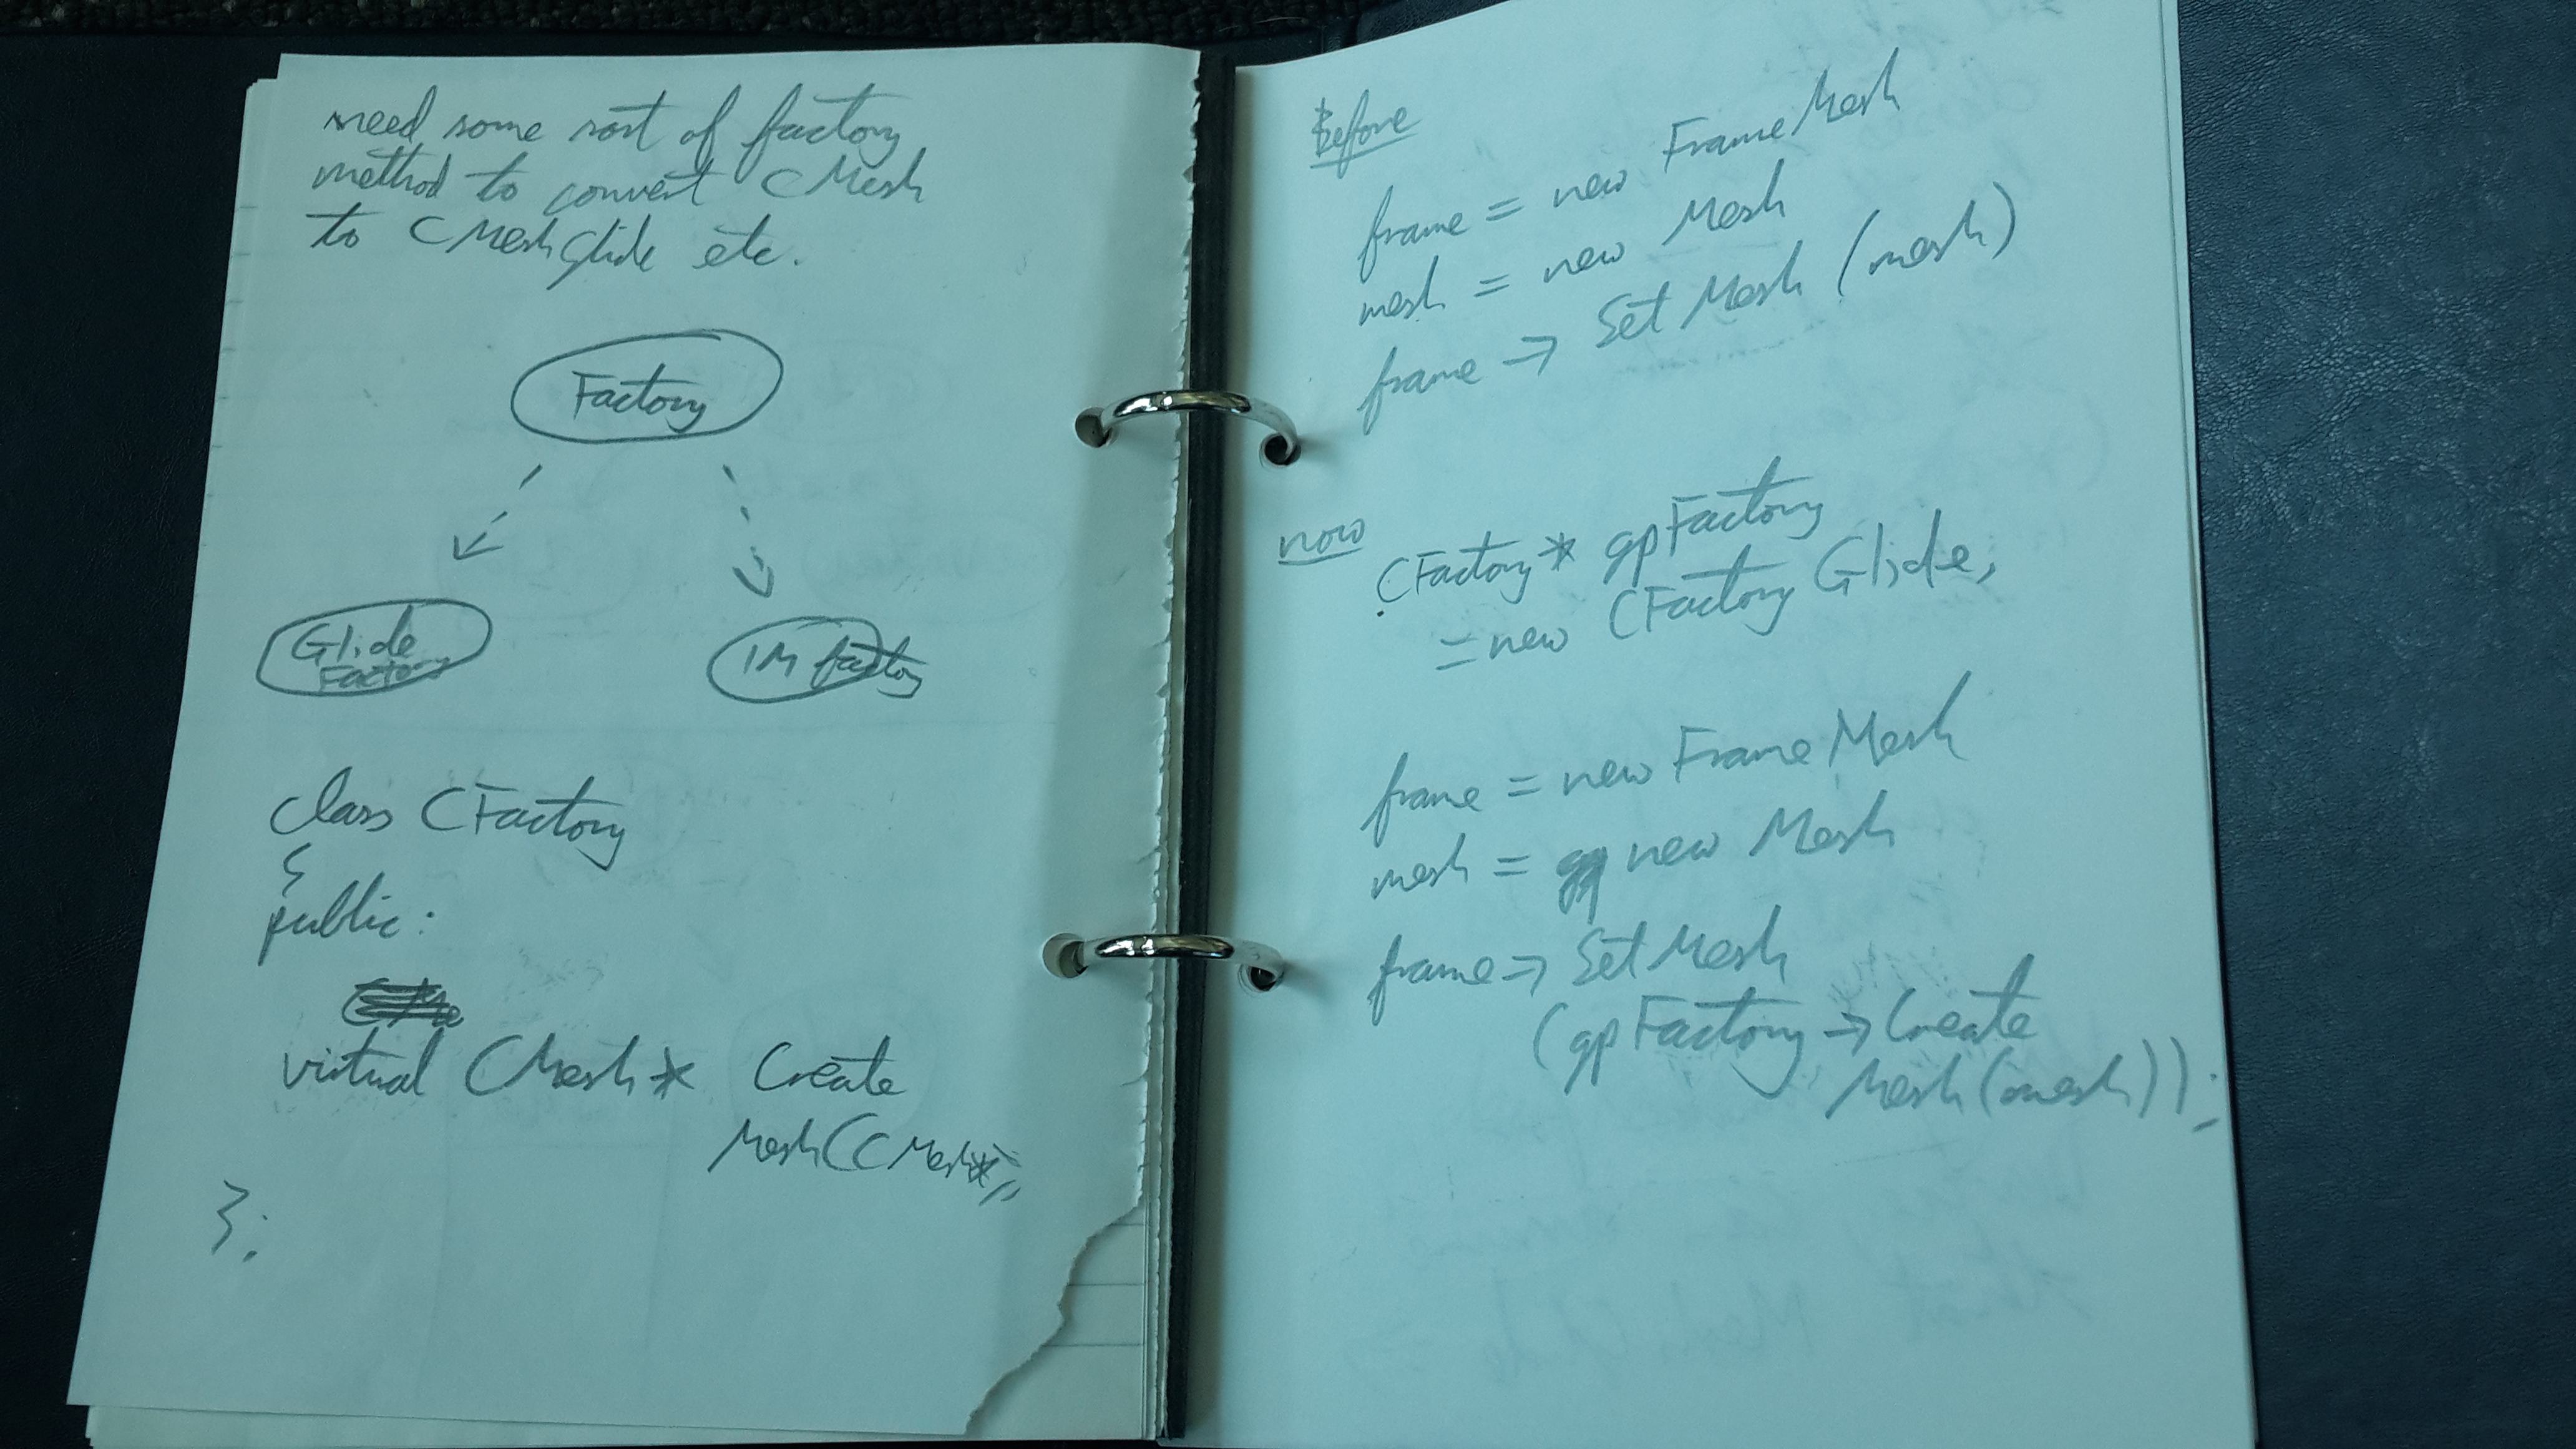 need some sort of factory
method to convert CMesh
to CMeshGlide etc.
Factory
Glide
Factory
IM factory
class CFactory
{
public:
virtual CMesh* Create
Mesh(CMesh*);
};
Before
frame = new FrameMesh
mesh = new Mesh
frame -> SetMesh (mesh)
now
CFactory* gpFactory
= new CFactoryGlide;
frame = new FrameMesh
mesh = new Mesh
frame -> SetMesh
(gpFactory -> Create
Mesh(mesh));